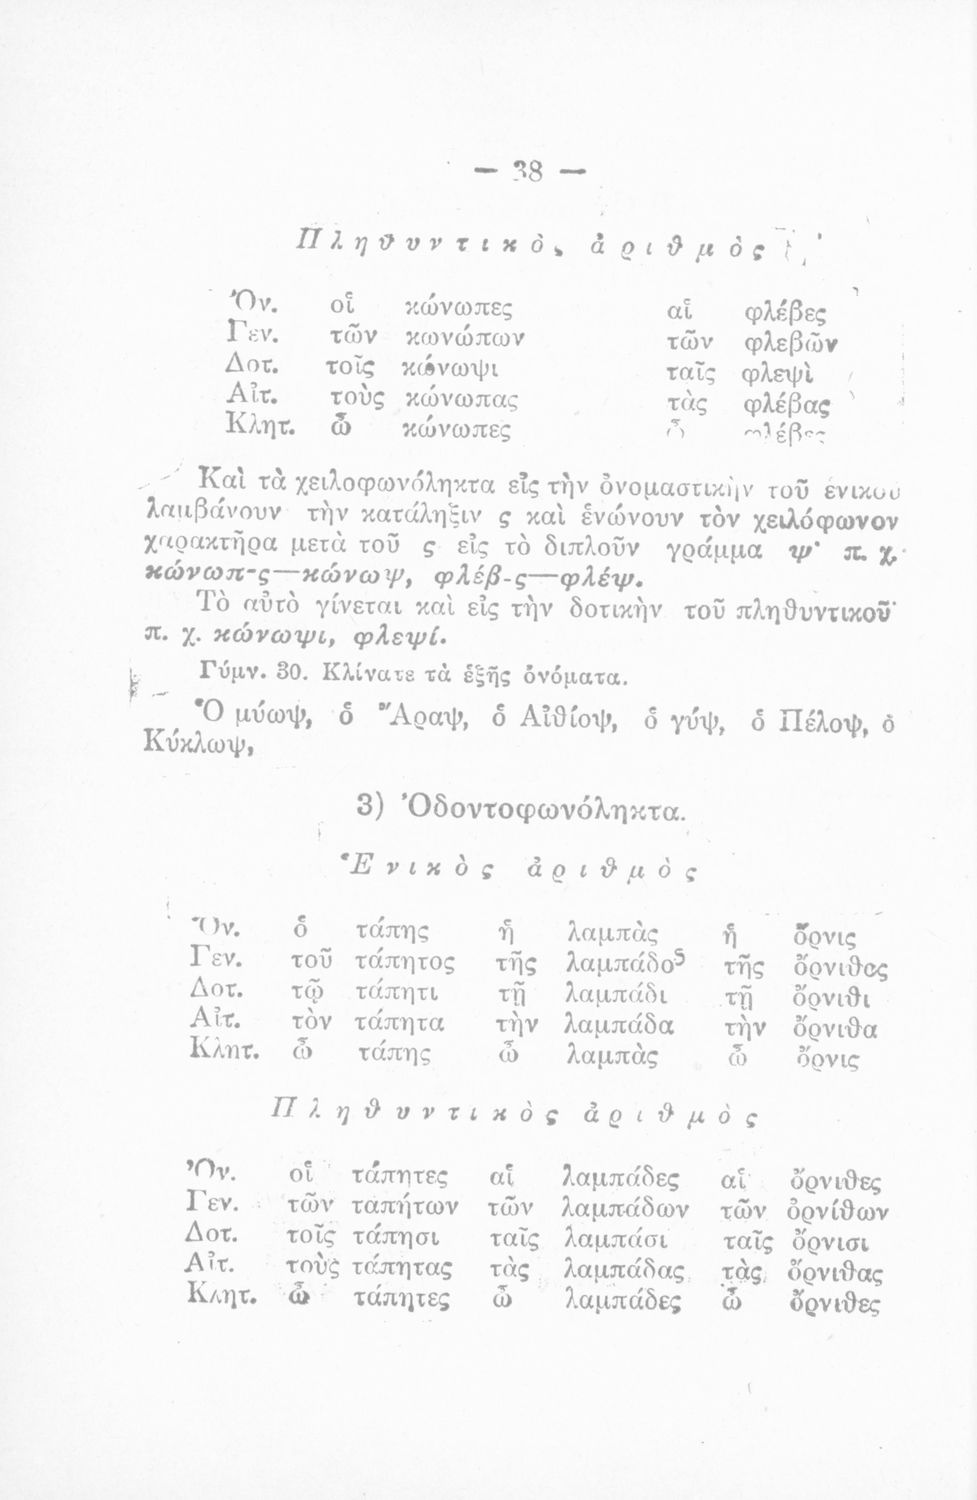 — 38 —
Πληθυντικὸς ἀριθμὸς
Ὀν. οἱ κώνωπες αἱ φλέβες
Γεν. τῶν κωνώπων τῶν φλεβῶν
Δοτ. τοῖς κώνωψι ταῖς φλεψὶ
Αἰτ. τοὺς κώνωπας τὰς φλέβας
Κλητ. ὦ κώνωπες ὦ φλέβες
Καὶ τὰ χειλοφωνόληκτα εἰς τὴν ὀνομαστικὴν τοῦ ἑνικοῦ
λαμβάνουν τὴν κατάληξιν ς καὶ ἑνώνουν τὸν χειλόφωνον
χαρακτῆρα μετὰ τοῦ ς εἰς τὸ διπλοῦν γράμμα ψ· π. χ.
κώνωπ-ς—κώνωψ, φλέβ-ς—φλέψ.
Τὸ αὐτὸ γίνεται καὶ εἰς τὴν δοτικὴν τοῦ πληθυντικοῦ·
π. χ. κώνωψι, φλεψί.
Γύμν. 30. Κλίνατε τὰ ἑξῆς ὀνόματα.
Ὁ μύωψ, ὁ Ἄραψ, ὁ Αἰθίοψ, ὁ γύψ, ὁ Πέλοψ, ὁ
Κύκλωψ,
3) Ὀδοντοφωνόληκτα.
Ἑνικὸς ἀριθμὸς
Ὀν. ὁ τάπης ἡ λαμπὰς ἡ ὄρνις
Γεν. τοῦ τάπητος τῆς λαμπάδος τῆς ὄρνιθος
Δοτ. τῷ τάπητι τῇ λαμπάδι τῇ ὄρνιθι
Αἰτ. τὸν τάπητα τὴν λαμπάδα τὴν ὄρνιθα
Κλητ. ὦ τάπης ὦ λαμπὰς ὦ ὄρνις
Πληθυντικὸς ἀριθμὸς
Ὀν. οἱ τάπητες αἱ λαμπάδες αἱ ὄρνιθες
Γεν. τῶν ταπήτων τῶν λαμπάδων τῶν ὀρνίθων
Δοτ. τοῖς τάπησι ταῖς λαμπάσι ταῖς ὄρνισι
Αἰτ. τοὺς τάπητας τὰς λαμπάδας τὰς ὄρνιθας
Κλητ. ὦ τάπητες ὦ λαμπάδες ὦ ὄρνιθες